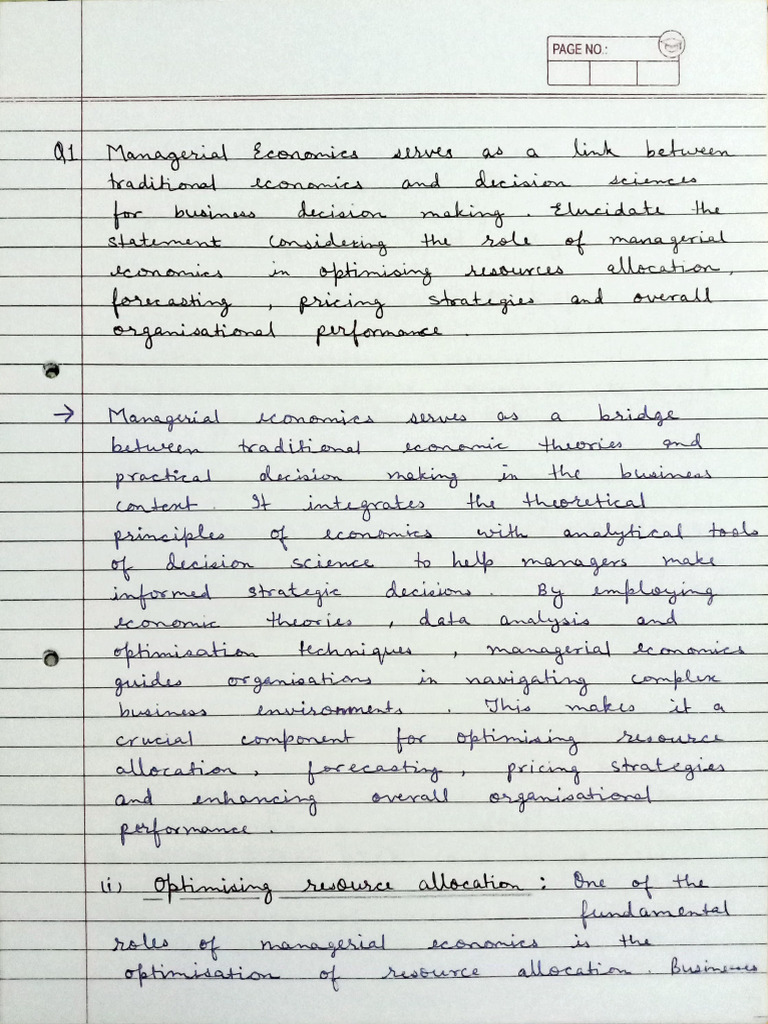 PAGE NO.:
Q1 Managerial Economics serves as a link between
traditional economics and decision sciences
for business decision making. Elucidate the
statement considering the role of managerial
economics in optimising resources allocation,
forecasting, pricing strategies and overall
organisational performance.
→ Managerial economics serves as a bridge
between traditional economic theories and
practical decision making in the business
context. It integrates the theoretical
principles of economics with analytical tools
of decision science to help managers make
informed strategic decisions. By employing
economic theories, data analysis and
optimisation techniques, managerial economics
guides organisations in navigating complex
business environments. This makes it a
crucial component for optimising resource
allocation, forecasting, pricing strategies
and enhancing overall organisational
performance.
(i) Optimising resource allocation: One of the
fundamental
roles of managerial economics is the
optimisation of resource allocation. Businesses